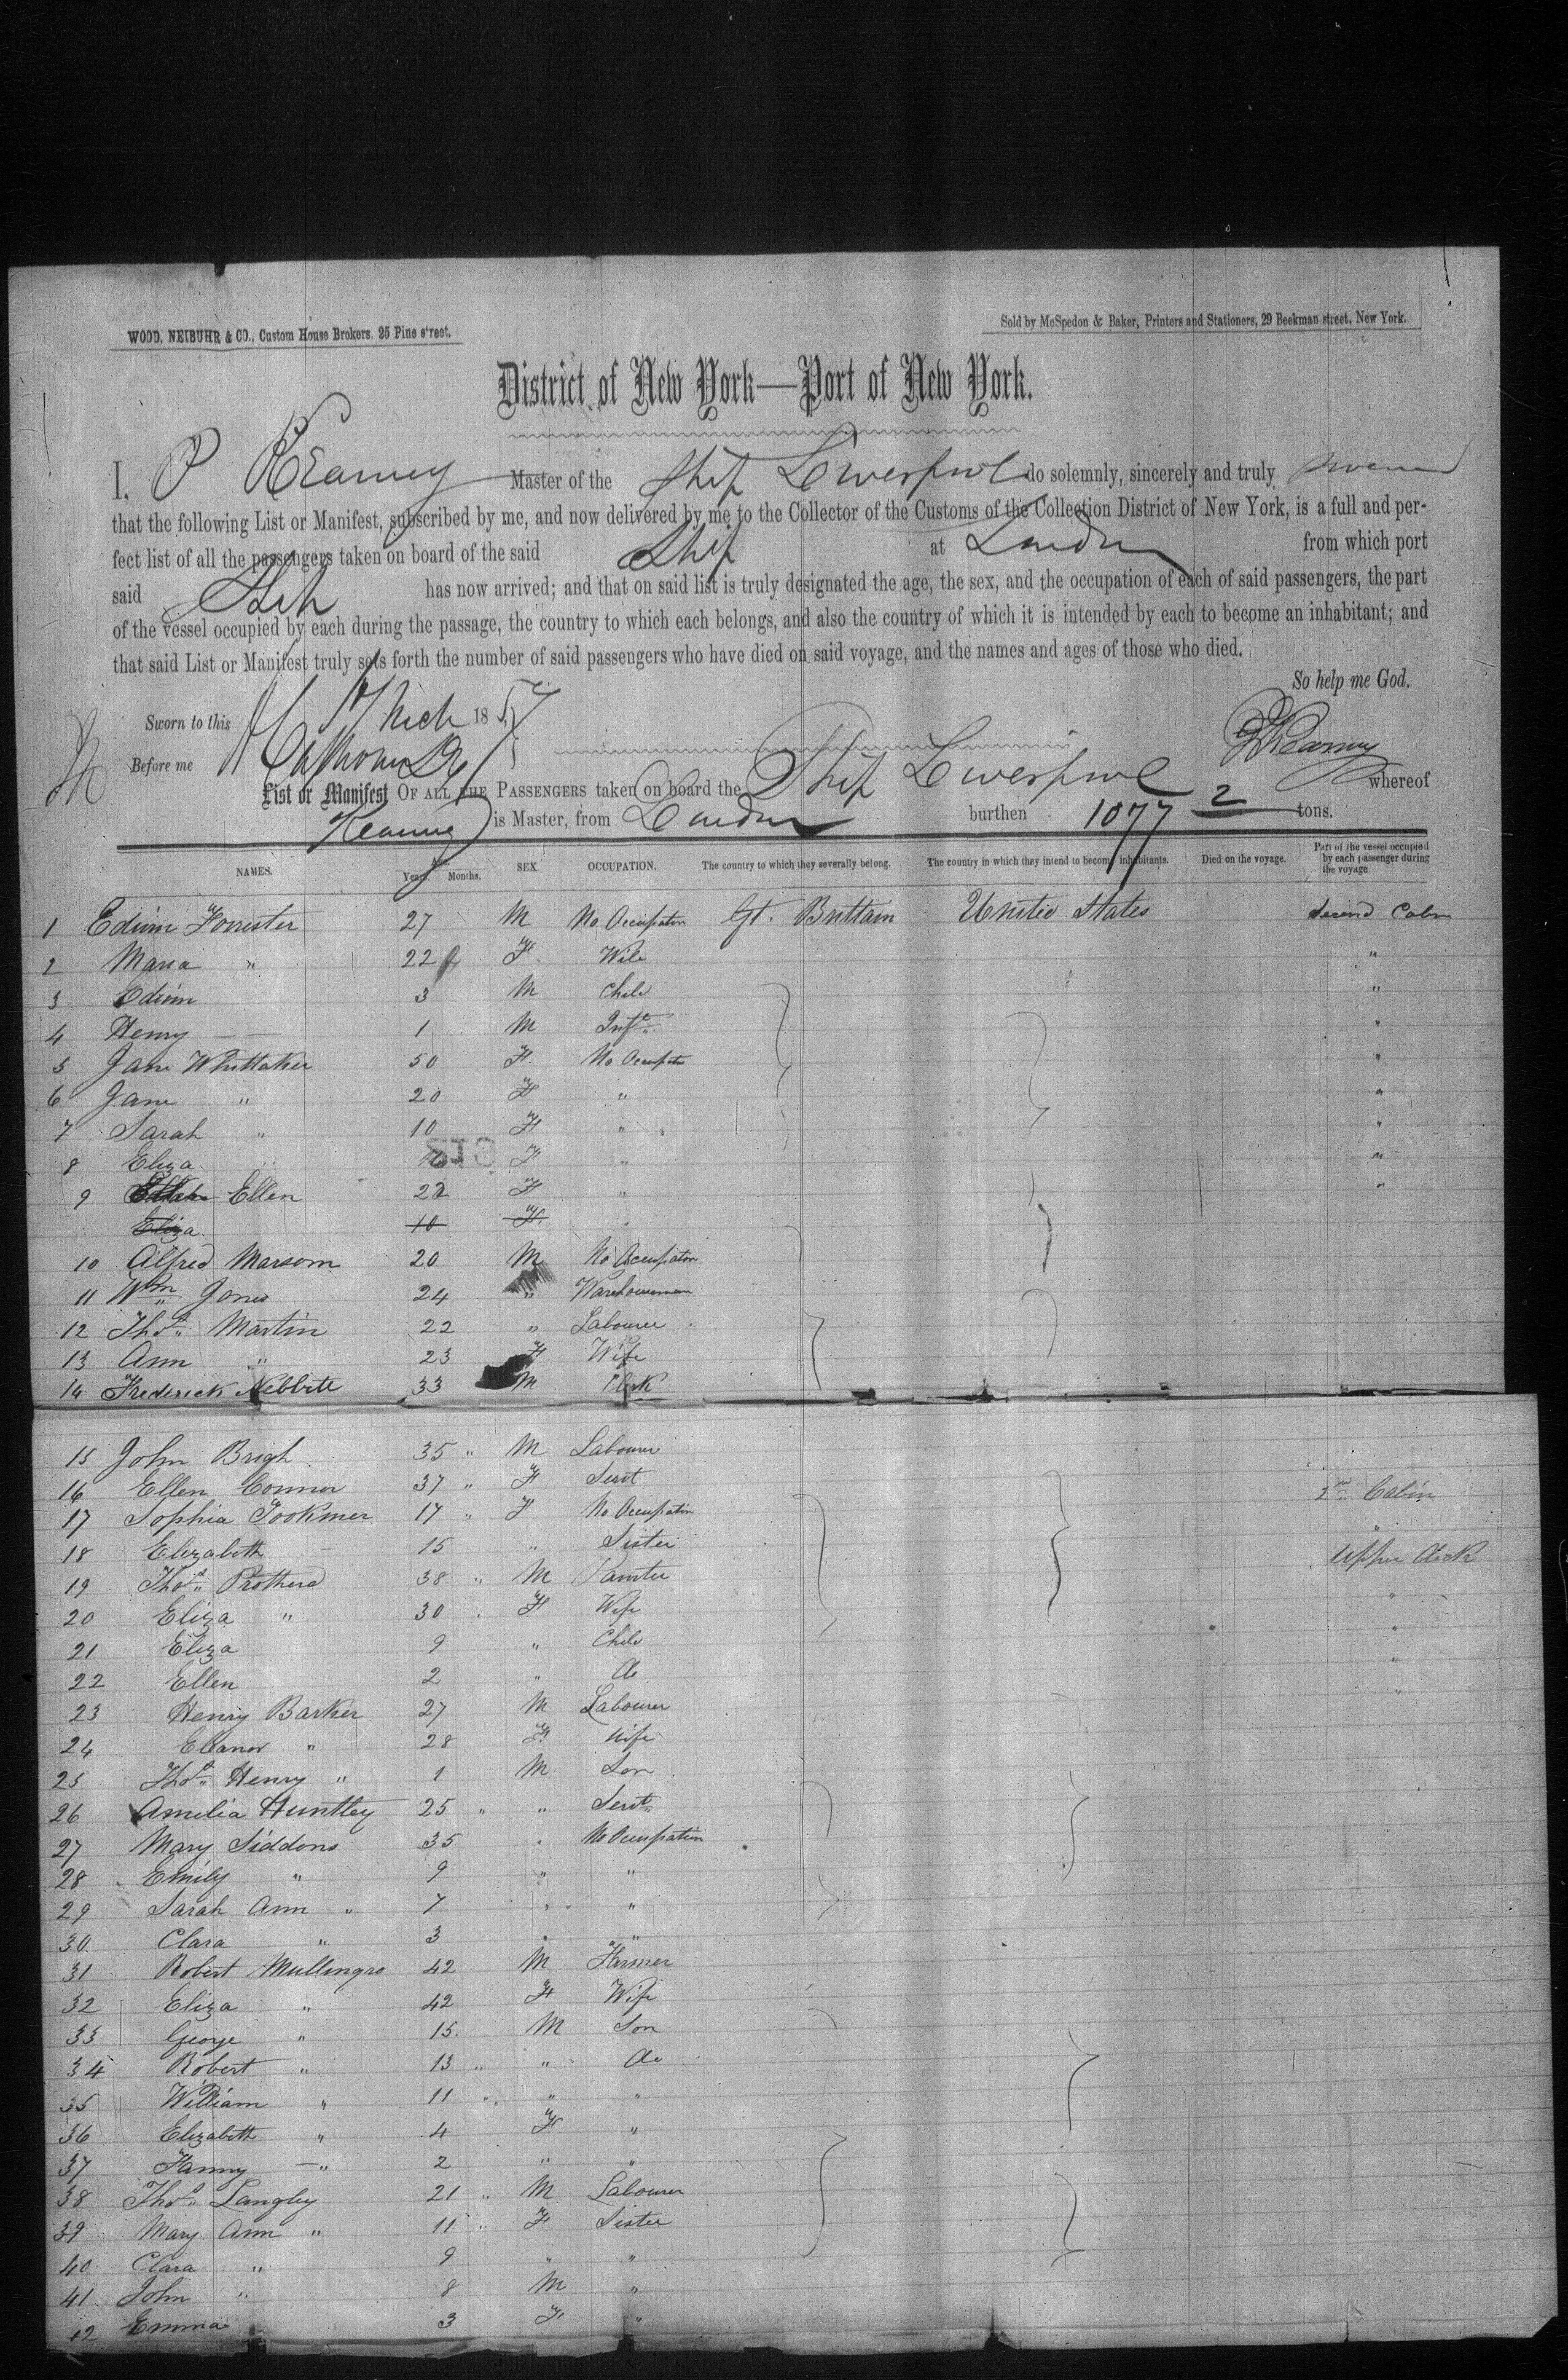 WOOD, NEIBUHR & CO., Custom House Brokers. 25 Pine street.
Sold by McSpedon & Baker, Printers and Stationers, 29 Beekman street, New York.
District of New York—Port of New York.
I, P Kearney Master of the Ship Liverpool do solemnly, sincerely and truly swear
that the following List or Manifest, subscribed by me, and now delivered by me to the Collector of the Customs of the Collection District of New York, is a full and per-
fect list of all the passengers taken on board of the said Ship at London from which port
said Ship has now arrived; and that on said list is truly designated the age, the sex, and the occupation of each of said passengers, the part
of the vessel occupied by each during the passage, the country to which each belongs, and also the country of which it is intended by each to become an inhabitant; and
that said List or Manifest truly sets forth the number of said passengers who have died on said voyage, and the names and ages of those who died.
So help me God.
Sworn to this 17 Mch 1857
Before me
P Kearney
List or Manifest OF ALL THE PASSENGERS taken on board the Ship Liverpool whereof
Kearney is Master, from London burthen 1077 2 tons.
NAMES. Years. Months. SEX. OCCUPATION. The country to which they severally belong. The country in which they intend to become inhabitants. Died on the voyage. Part of the vessel occupied by each passenger during the voyage
1 Edwin Forrester 27 M No Occupation Gt. Brittain United States Second Cabin
2 Maria " 22 F. Wife "
3 Edwin 3 M Child "
4 Henry — 1 M Inft. "
5 Jane Whittaker 50 F No Occupation "
6 Jane " 20 F " "
7 Sarah " 10 F " "
8 Eliza " F " "
9 Ellen 22 F " "
Eliza 10 F.
10 Alfred Marsom 20 M No Occupation
11 Wm Jones 24 " Warehouseman
12 Thos. Martin 22 " Labourer
13 Ann " 23 F Wife
14 Frederick Nebbite 33 M Clerk
15 John Brigh 35 " M Labourer
16 Ellen Connor 37 " F Servt 2nd Cabin
17 Sophia Tookmer 17 " F No Occupation "
18 Elizabeth — 15 " Sister Upper deck
19 Thos. Prothero 38 " M Painter "
20 Eliza " 30 F Wife "
21 Eliza 9 " Child "
22 Ellen 2 " Do "
23 Henry Barker 27 M Labourer
24 Eleanor " 28 F Wife
25 Thos. Henry " 1 M Son
26 Amelia Huntley 25 " " Servt.
27 Mary Siddons 35 " No Occupation
28 Emily " 9 " "
29 Sarah Ann " 7 " "
30 Clara " 3 " "
31 Robert Mullingrs 42 M Farmer
32 Eliza " 42 F Wife
33 George " 15. M Son
34 Robert " 13 " " Do
35 William " 11 " " "
36 Elizabeth " 4 F "
37 Fanny —" 2 " "
38 Thos. Langley 21 " M Labourer
39 Mary Ann " 11 " F Sister
40 Clara " 9 " "
41 John " 8 M "
42 Emma 3 F "